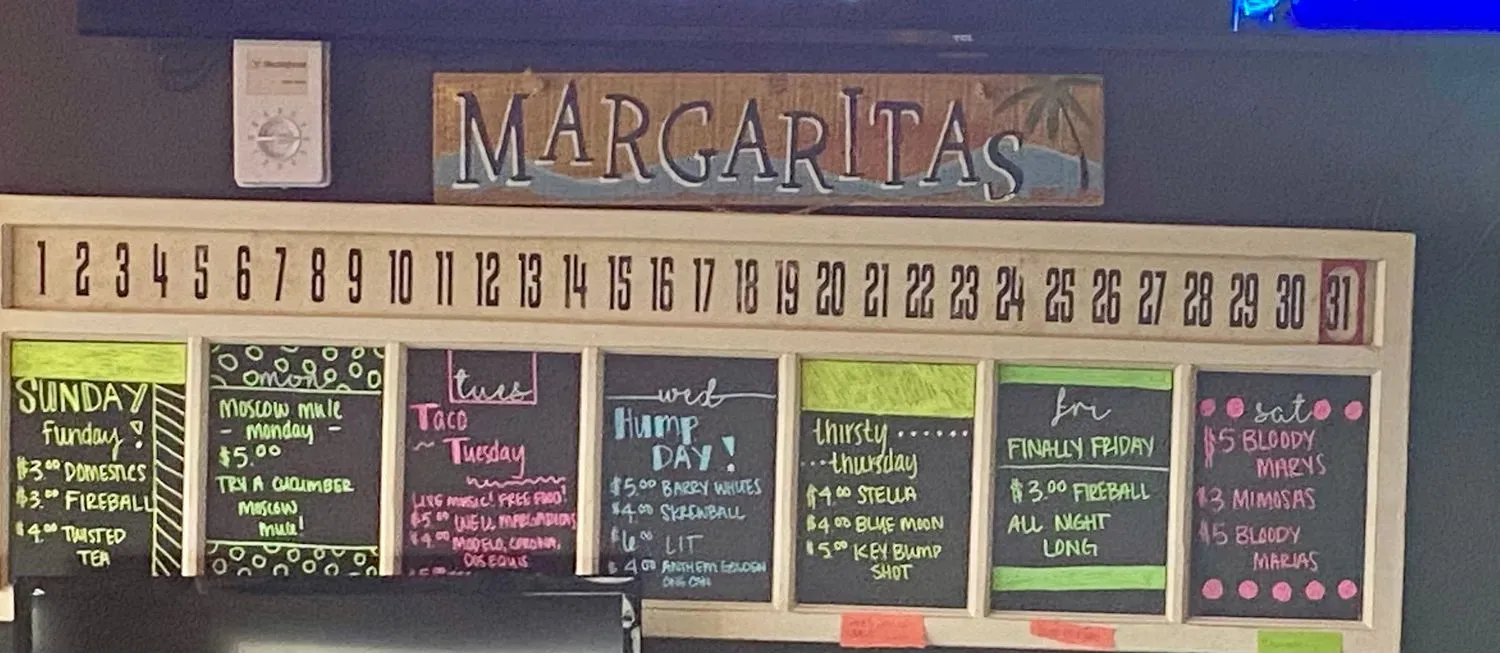 TCL
Westinghouse
MARGARITAS
1 2 3 4 5 6 7 8 9 10 11 12 13 14 15 16 17 18 19 20 21 22 23 24 25 26 27 28 29 30 31
SUNDAY
Funday!
$3.00 DOMESTICS
$3.00 FIREBALL
$4.00 TWISTED
TEA
mon
MOSCOW MULE
- monday -
$5.00
TRY A CUCUMBER
MOSCOW
MULE!
tues
Taco
Tuesday
LIVE MUSIC! FREE FOOD!
$5.00 WELL MARGARITAS
$4.00 MODELO, CORONA,
DOS EQUIS
wed
HUMP
DAY!
$5.00 BARRY WHITES
$4.00 SKREWBALL
$6.00 LIT
$4.00 ANTHEM GOLDEN
ONE
thirsty
thursday
$4.00 STELLA
$4.00 BLUE MOON
$5.00 KEY BUMP
SHOT
fri
FINALLY FRIDAY
$3.00 FIREBALL
ALL NIGHT
LONG
sat
$5 BLOODY
MARYS
$3 MIMOSAS
$5 BLOODY
MARIAS